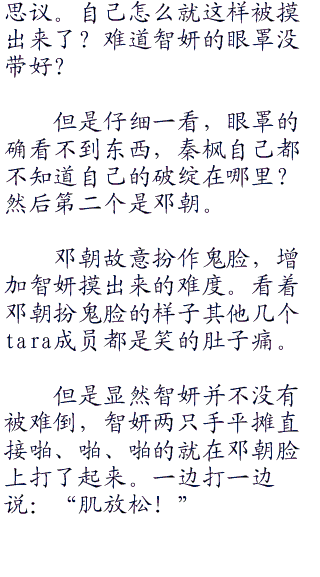 思议。自己怎么就这样被摸
出来了？难道智妍的眼罩没
带好？
但是仔细一看，眼罩的
确看不到东西，秦枫自己都
不知道自己的破绽在哪里？
然后第二个是邓朝。
邓朝故意扮作鬼脸，增
加智妍摸出来的难度。看着
邓朝扮鬼脸的样子其他几个
tara成员都是笑的肚子痛。
但是显然智妍并不没有
被难倒，智妍两只手平摊直
接啪、啪、啪的就在邓朝脸
上打了起来。一边打一边
说：“肌放松！”